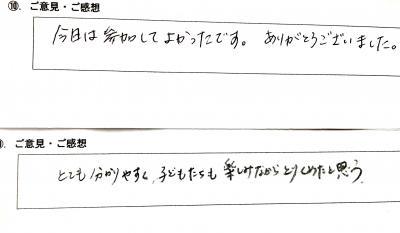 ⑩. ご意見・ご感想
今日は参加してよかったです。 ありがとうございました。
. ご意見・ご感想
とても分かりやすく、子どもたちも楽しみながらとりくめたと思う